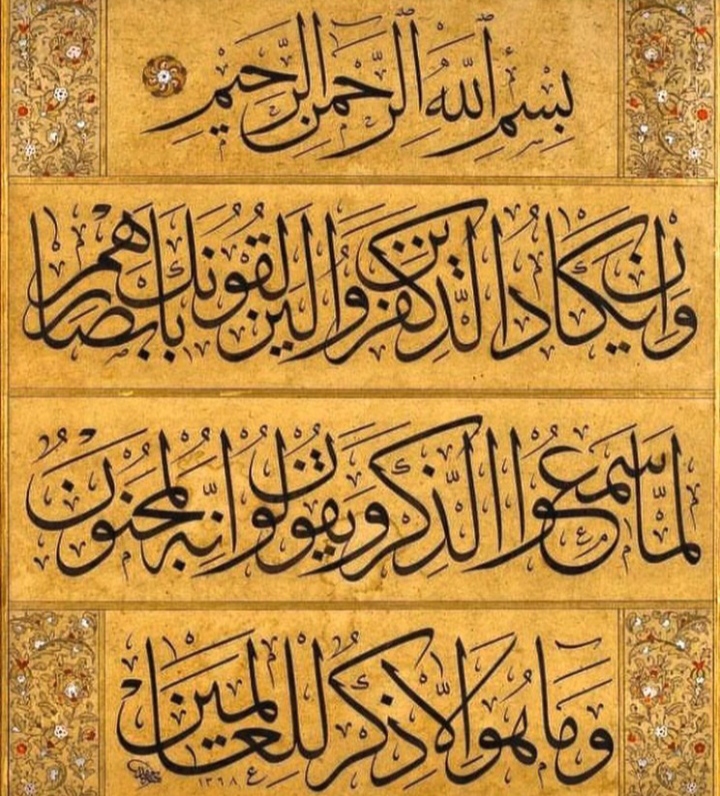 بِسْمِ ٱللَّهِ ٱلرَّحْمٰنِ ٱلرَّحِيمِ
وَإِنْ يَكَادُ الَّذِينَ كَفَرُوا لَيُزْلِقُونَكَ بِأَبْصَارِهِمْ
لَمَّا سَمِعُوا الذِّكْرَ وَيَقُولُونَ إِنَّهُ لَمَجْنُونٌ
وَمَا هُوَ إِلَّا ذِكْرٌ لِلْعَالَمِينَ
١٣٦٨